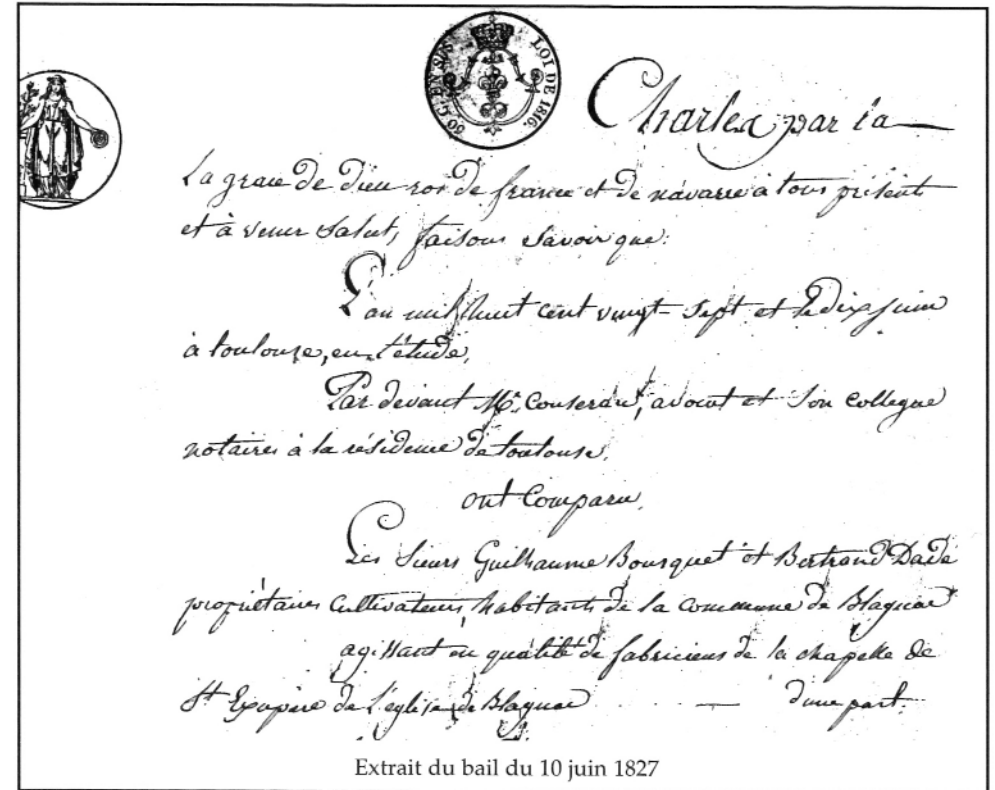 50 C. EN SUS
LOI DE 1816.
Charles par la
La grace de Dieu roi de france et de navarre à tous présents
et à venir Salut, faisons Savoir que:
L'an mil huit cent vingt-Sept et le dix juin
à toulouse, en l'étude,
Par devant Me. Couseran, avocat et Son collegue
notaires à la résidence de toulouse.
ont Comparu,
Les Sieurs Guilhaume Bousquet et Bertrand Dadé
propriétaires Cultivateurs, habitants de la commune de Blagnac
agissant en qualité de fabriciens de la chapelle de
St Exupère de L'église de Blagnac ..... — d'une part.
Extrait du bail du 10 juin 1827